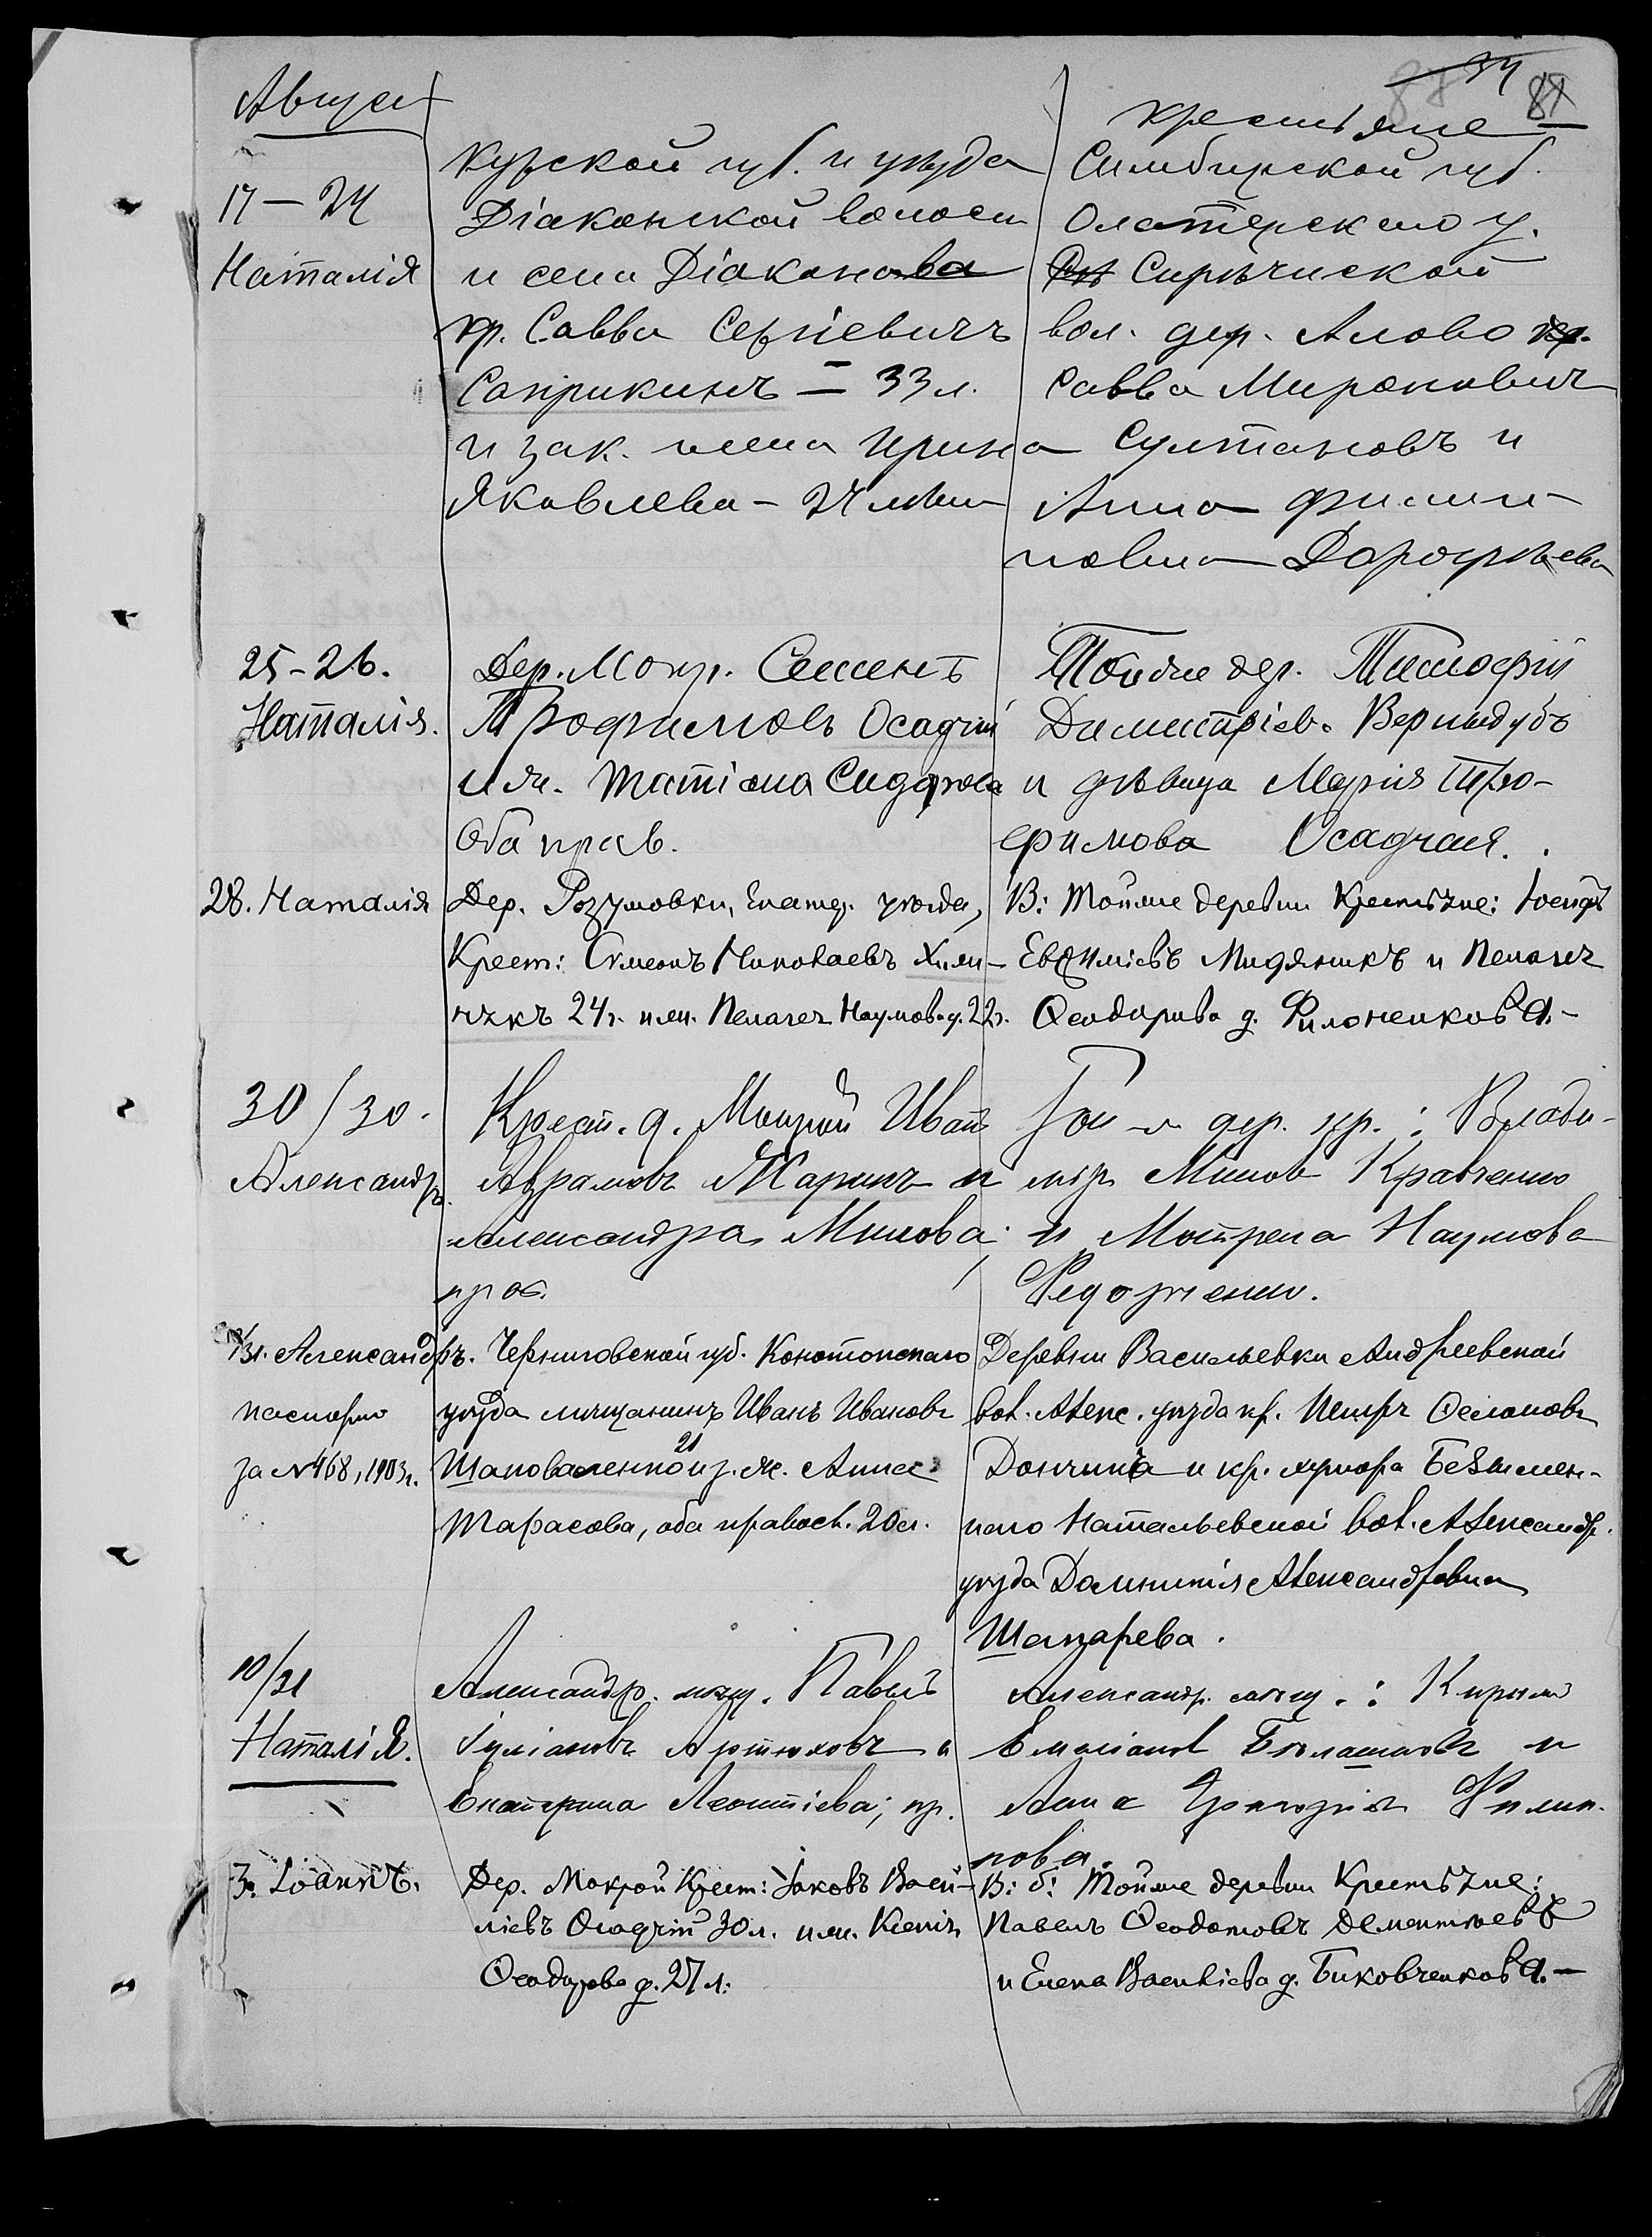 34
87
87
Август
17 – 24
Наталія
Курской губ. и уѣзда
Діаконской волости
и села Діаконова
кр. Савва Сергіевичъ
Саприкинъ – 33 л.
и зак. жена Ирина
Яковлева – 24 лѣтъ
крестьяне
Симбирской губ.
у.
вол. дер. Алово кр.
Савва Миронович
Султановъ и
Анна Филип-
повна Дорофѣева
25-26.
Наталія.
Дер. Мокр. Семенъ
Трофимовъ Осадчій
и ж. Татіана Сидорова
Оба прав.
Той же дер. Тимофѣй
Димитріев. Вернидубъ
и дѣвица Марія Тро-
фимова Осадчая.
28. Наталія
Дер. Розумовки, Екатер. уѣзда,
Крест: Симеонъ Николаевъ Хими-
чукъ 24 г. и жен. Пелагея Наумова д. 22 г.
В: Тойже деревни Крестьяне: Іосифъ
Евѳиміевъ Мидяникъ и Пелагея
Ѳеодорова д. Филоненкова. –
30/30.
Александръ.
Крест. д. Мокрой Иванъ
Аврамовъ Жаринъ и
Александра Минова
прав.
Той ж дер. кр.: Влади-
мір Минов Кравченко
и Мотрена Наумова
Федорченко.
/31. Александръ.
паспорт
за № 468, 1903 г.
Черниговской губ. Конотопскаго
уѣзда мѣщанинъ Иванъ Ивановъ
Шаповаленко 21 и з. ж. Анна
Тарасова, оба правосл. 20 л.
Деревни Васильевки Андреевской
вол. Алекс. уѣзда кр. Петръ
и кр. хутора
Натальевской вол. Александр.
уѣзда Домникія Александровна
Шапарева.
10/31
Наталія.
Александр. мѣщ. Павелъ
Іуліановъ Артюховъ и
Екатерина Леонтіева; пр.
Александр. мѣщ.: Кирилъ
Емиліанов и
Анна Григорія Филип-
пова.
3. Іоаннъ.
Дер. Мокрой Крест: Іаковъ Васи-
ліевъ Осадчій 30 л. и жен. Ксенія
Ѳеодорова д. 27 л.
В: б: Тойже деревни Крестьяне:
Павелъ Ѳеодотовъ Дементьевъ
и Елена Василіева д. Биковченкова. –